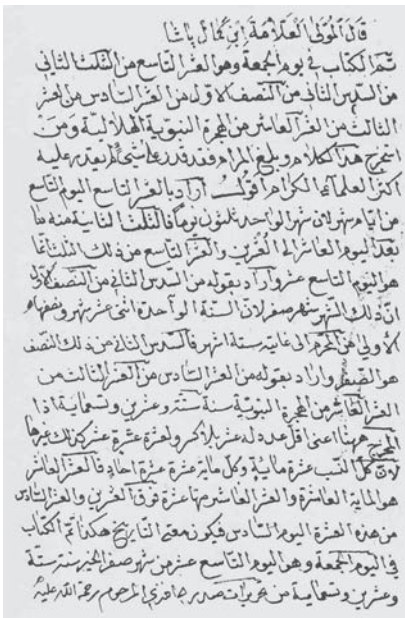 قال المولى العلامة ابن كمال باشا
تم الكتاب في يوم الجمعة وهو العشر التاسع من الثلث الثاني
من السدس الثاني من النصف الاول من العشر السادس من العشر
الثالث من العشر العاشر من الهجرة النبوية الهلالية ومن
استخرج هذا الكلام وبلغ المرام فقد قدر على شئ لم يقدر عليه
اكثر العلماء الكرام اقول اراد بالعشر التاسع اليوم التاسع
من ايام شهر لان شهر الواحد ثلثون يوما فالثلث الثانية منه ما
بعد اليوم العاشر الى العشرين والعشر التاسع من ذلك الثلث
هو اليوم التاسع عشر واراد بقوله من السدس الثاني من النصف الاول
ان ذلك الشهر شهر صفر لان السنة الواحدة اثنى عشر شهر ونصفها
الاولى من المحرم الى غاية ستة اشهر فالسدس الثاني من ذلك النصف
هو الصفر واراد بقوله من العشر السادس من العشر الثالث من
العشر العاشر من الهجرة النبوية سنة ستة وعشرين وتسعماية اذا
المخرج ههنا اعنى اقل عدد له عشر بلا كسر ولعشرة عشرة عشر كذلك عشرها
لان كل النسب عشرة ماية وكل ماية عشرة عشرة احاد فالعشر العاشر
هو الماية العاشرة والعشر العاشر منها عشرة فوق العشرين والعشر السادس
من هذه العشرة اليوم السادس فيكون معنى التاريخ هكذا تم الكتاب
في اليوم الجمعة وهو اليوم التاسع عشر من شهر صفر الخير سنة ستة
وعشرين وتسعماية من تحريرات صدر جافندى المرحوم رحمة الله عليه